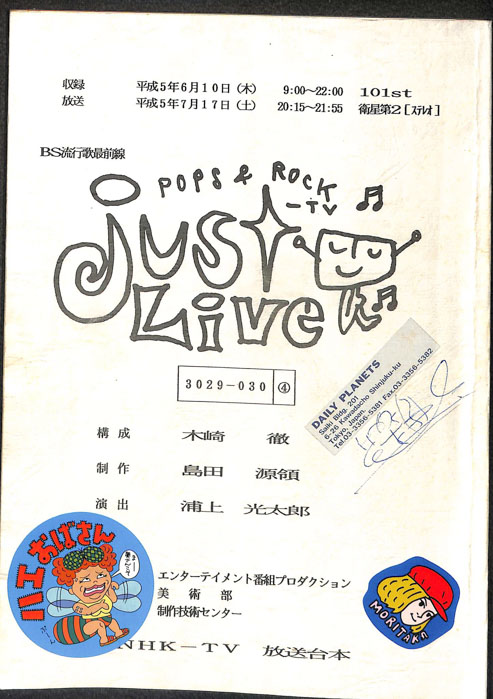 収録 平成5年6月10日(木) 9:00〜22:00 101st
放送 平成5年7月17日(土) 20:15〜21:55 衛星第2[ステレオ]
BS流行歌最前線
POPS & ROCK
-TV
JUST
Live
3029-030 ④
DAILY PLANETS
Saiki Bldg. 201
6-26 Kawadacho Shinjuku-ku
Tokyo, Japan.
Tel.03-3356-5381 Fax.03-3356-5382
構成 木崎 徹
制作 島田 源領
演出 浦上 光太郎
ハエおばさん
エンターテイメント番組プロダクション
美術部
制作技術センター
MORITAKA
NHK-TV 放送台本